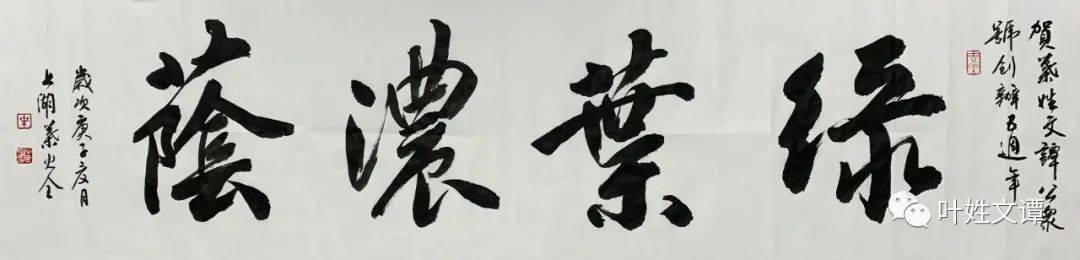 賀葉姓文譚公衆
號创辦五週年
绿葉濃蔭
歲次庚子夏月
上湖葉
叶姓文谭